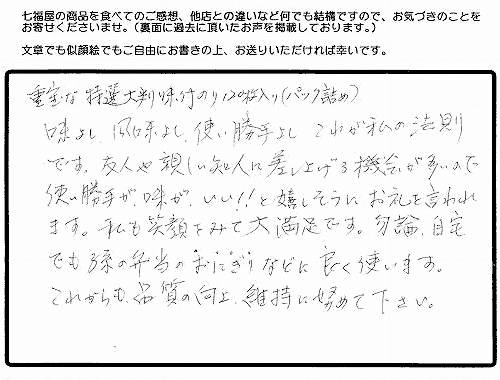 七福屋の商品を食べてのご感想、他店との違いなど何でも結構ですので、お気づきのことを
お寄せくださいませ。（裏面に過去に頂いたお声を掲載しております。）
文章でも似顔絵でもご自由にお書きの上、お送りいただければ幸いです。
重宝な 特選大判味付のり120枚入り(パック詰め)
味よし、風味よし、使い勝手よし これが私の法則
です。友人や親しい知人に差し上げる機会が多いので
使い勝手が、味が、いい!!と嬉しそうに お礼を言われ
ます。私も笑顔をみて大満足です。勿論、自宅
でも孫の弁当のおにぎりなどに良く使います。
これからも、品質の向上、維持に努めて下さい。